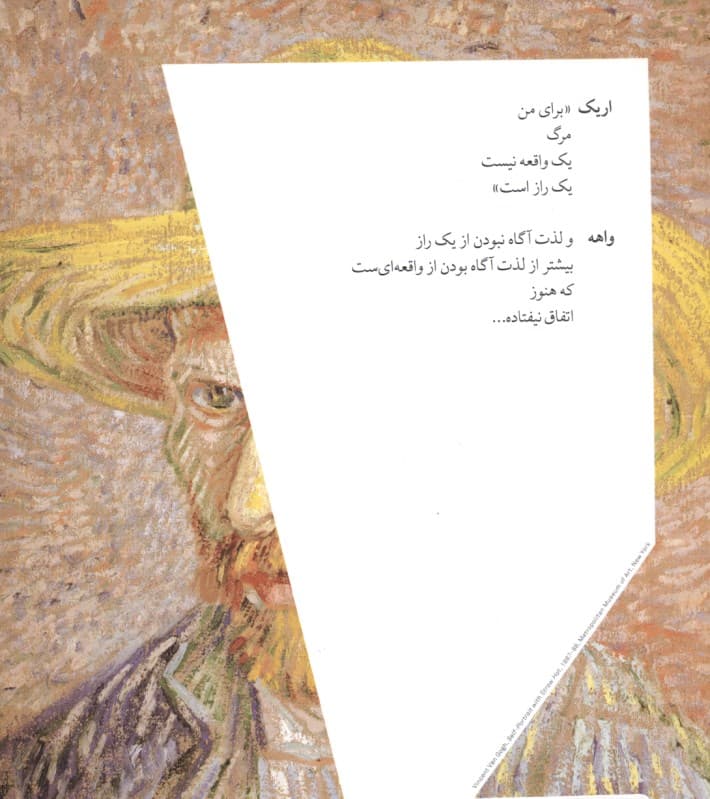 اریک «برای من
مرگ
یک واقعه نیست
یک راز است»
واهه و لذت آگاه نبودن از یک راز
بیشتر از لذت آگاه بودن از واقعه‌ای‌ست
که هنوز
اتفاق نیفتاده...
Vincent Van Gogh, Self-Portrait with Straw Hat, 1887-88, Metropolitan Museum of Art, New York